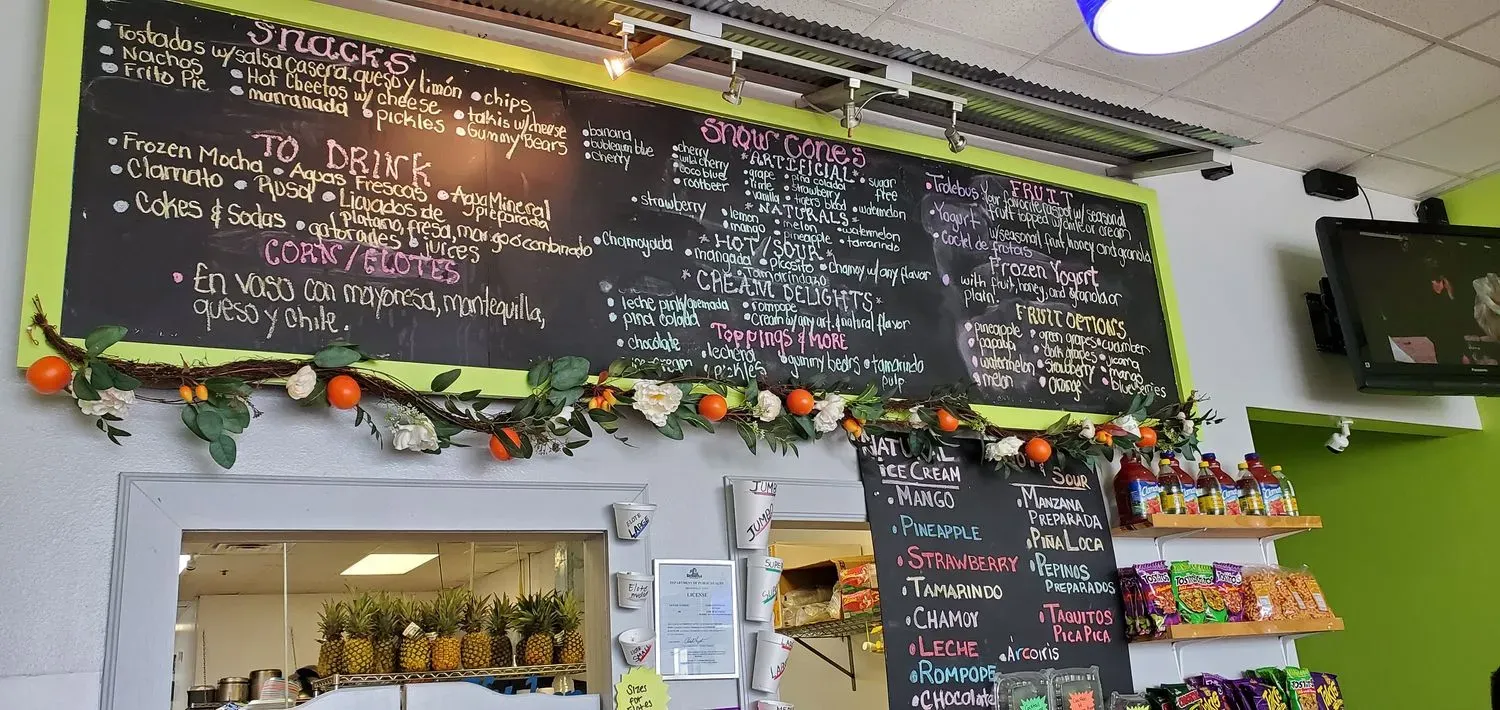 Snacks
• Tostados w/salsa casera, queso y limón • chips
• Nachos • Hot Cheetos w/ cheese • takis w/cheese
• Frito Pie • marranada • pickles • Gummy Bears
TO DRINK
• Frozen Mocha • Aguas Frescas • Agua Mineral preparada
• Clamato • Rusa! • Licuados de
platano, fresa, mango ó combinado
• Cokes & Sodas • gatorades • juices
CORN/ELOTES
• En vaso con mayonesa, mantequilla,
queso y chile.
Snow Cones
*ARTIFICIAL*
• banana
• bubblegum blue
• cherry
• cherry
• wild cherry
• coco blue
• rootbeer
• grape
• lime
• vanilla
• pina colada
• strawberry
• tigers blood
• sugar free
• watermelon
*NATURALS*
• strawberry
• lemon
• mango
• melon
• pineapple
• watermelon
• tamarindo
*HOT/SOUR*
• Chamoyada
• mangada • Picosito • chamoy w/any flavor
Tamarindazo
*CREAM DELIGHTS*
• leche, pink/quemada • rompope
• pina colada • cream w/any art. & natural flavor
Toppings & MORE
• chocolate • lechera • gummy bears • tamarindo pulp
ice cream • pickles
FRUIT
• Trolebus
• Yogurt w/seasonal fruit, honey and granola
• Coctel de frutas
Frozen Yogurt
with fruit, honey, and granola or
plain.
FRUIT OPTIONS
• pineapple • green grapes • cucumber
• papaya • dark grapes • jicama
• watermelon • strawberry • mango
• melon • orange • blueberries
NATURAL
ICE CREAM
• MANGO
• PINEAPPLE
• STRAWBERRY
• TAMARINDO
• CHAMOY
• LECHE
• ROMPOPE
• CHOCOLATE
SOUR
• MANZANA
PREPARADA
• PIÑA LOCA
• PEPINOS
PREPARADOS
• TAQUITOS
PICA PICA
• Arcoiris
ELOTE
LARGE
JUMBO
JUMBO
SUPER
DEPARTMENT OF PUBLIC HEALTH
LICENSE
Sizes
for
Elotes
Tostitos
Panasonic